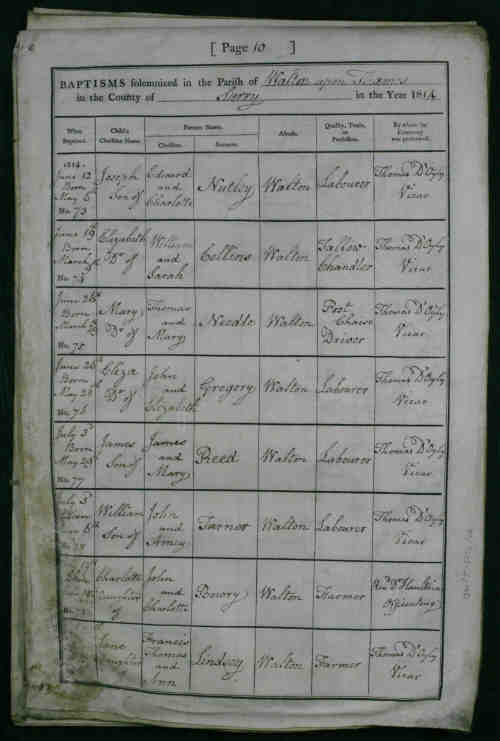 [ Page 10 ]
BAPTISMS solemnized in the Parish of Walton upon Thames
in the County of Surry in the Year 1814
When Baptized. Child's Christian Name. Parents Name. Abode. Quality, Trade, or Profession. By whom the Ceremony was performed.
Christian. Surname.
1814.
June 12 Joseph Edward Thomas D'Oyly
Born Son of and Nutley Walton Labourer Vicar
May 5 Charlotte
No. 73
June 19 Elizabeth William Tallow Thomas D'Oyly
Born Dr of and Collins Walton Chandler Vicar
March Sarah
No. 74
June 26 Mary Thomas Post Thomas D'Oyly
Born Dr of and Needle Walton Chaise Vicar
March Mary Driver
No. 75
June 26 Eliza John Thomas D'Oyly
Born Dr of and Gregory Walton Labourer Vicar
May 28 Elizabeth
No. 76
July 3 James James Thomas D'Oyly
Born Son of and Reed Walton Labourer Vicar
May 28 Mary
No. 77
July 3 William John Thomas D'Oyly
Born Son of and Walton Labourer Vicar
Charlotte John
Daughter and Walton Farmer
of Charlotte
Jane Francis Thomas D'Oyly
Daughter Thomas Lindsey Walton Farmer Vicar
and
Ann